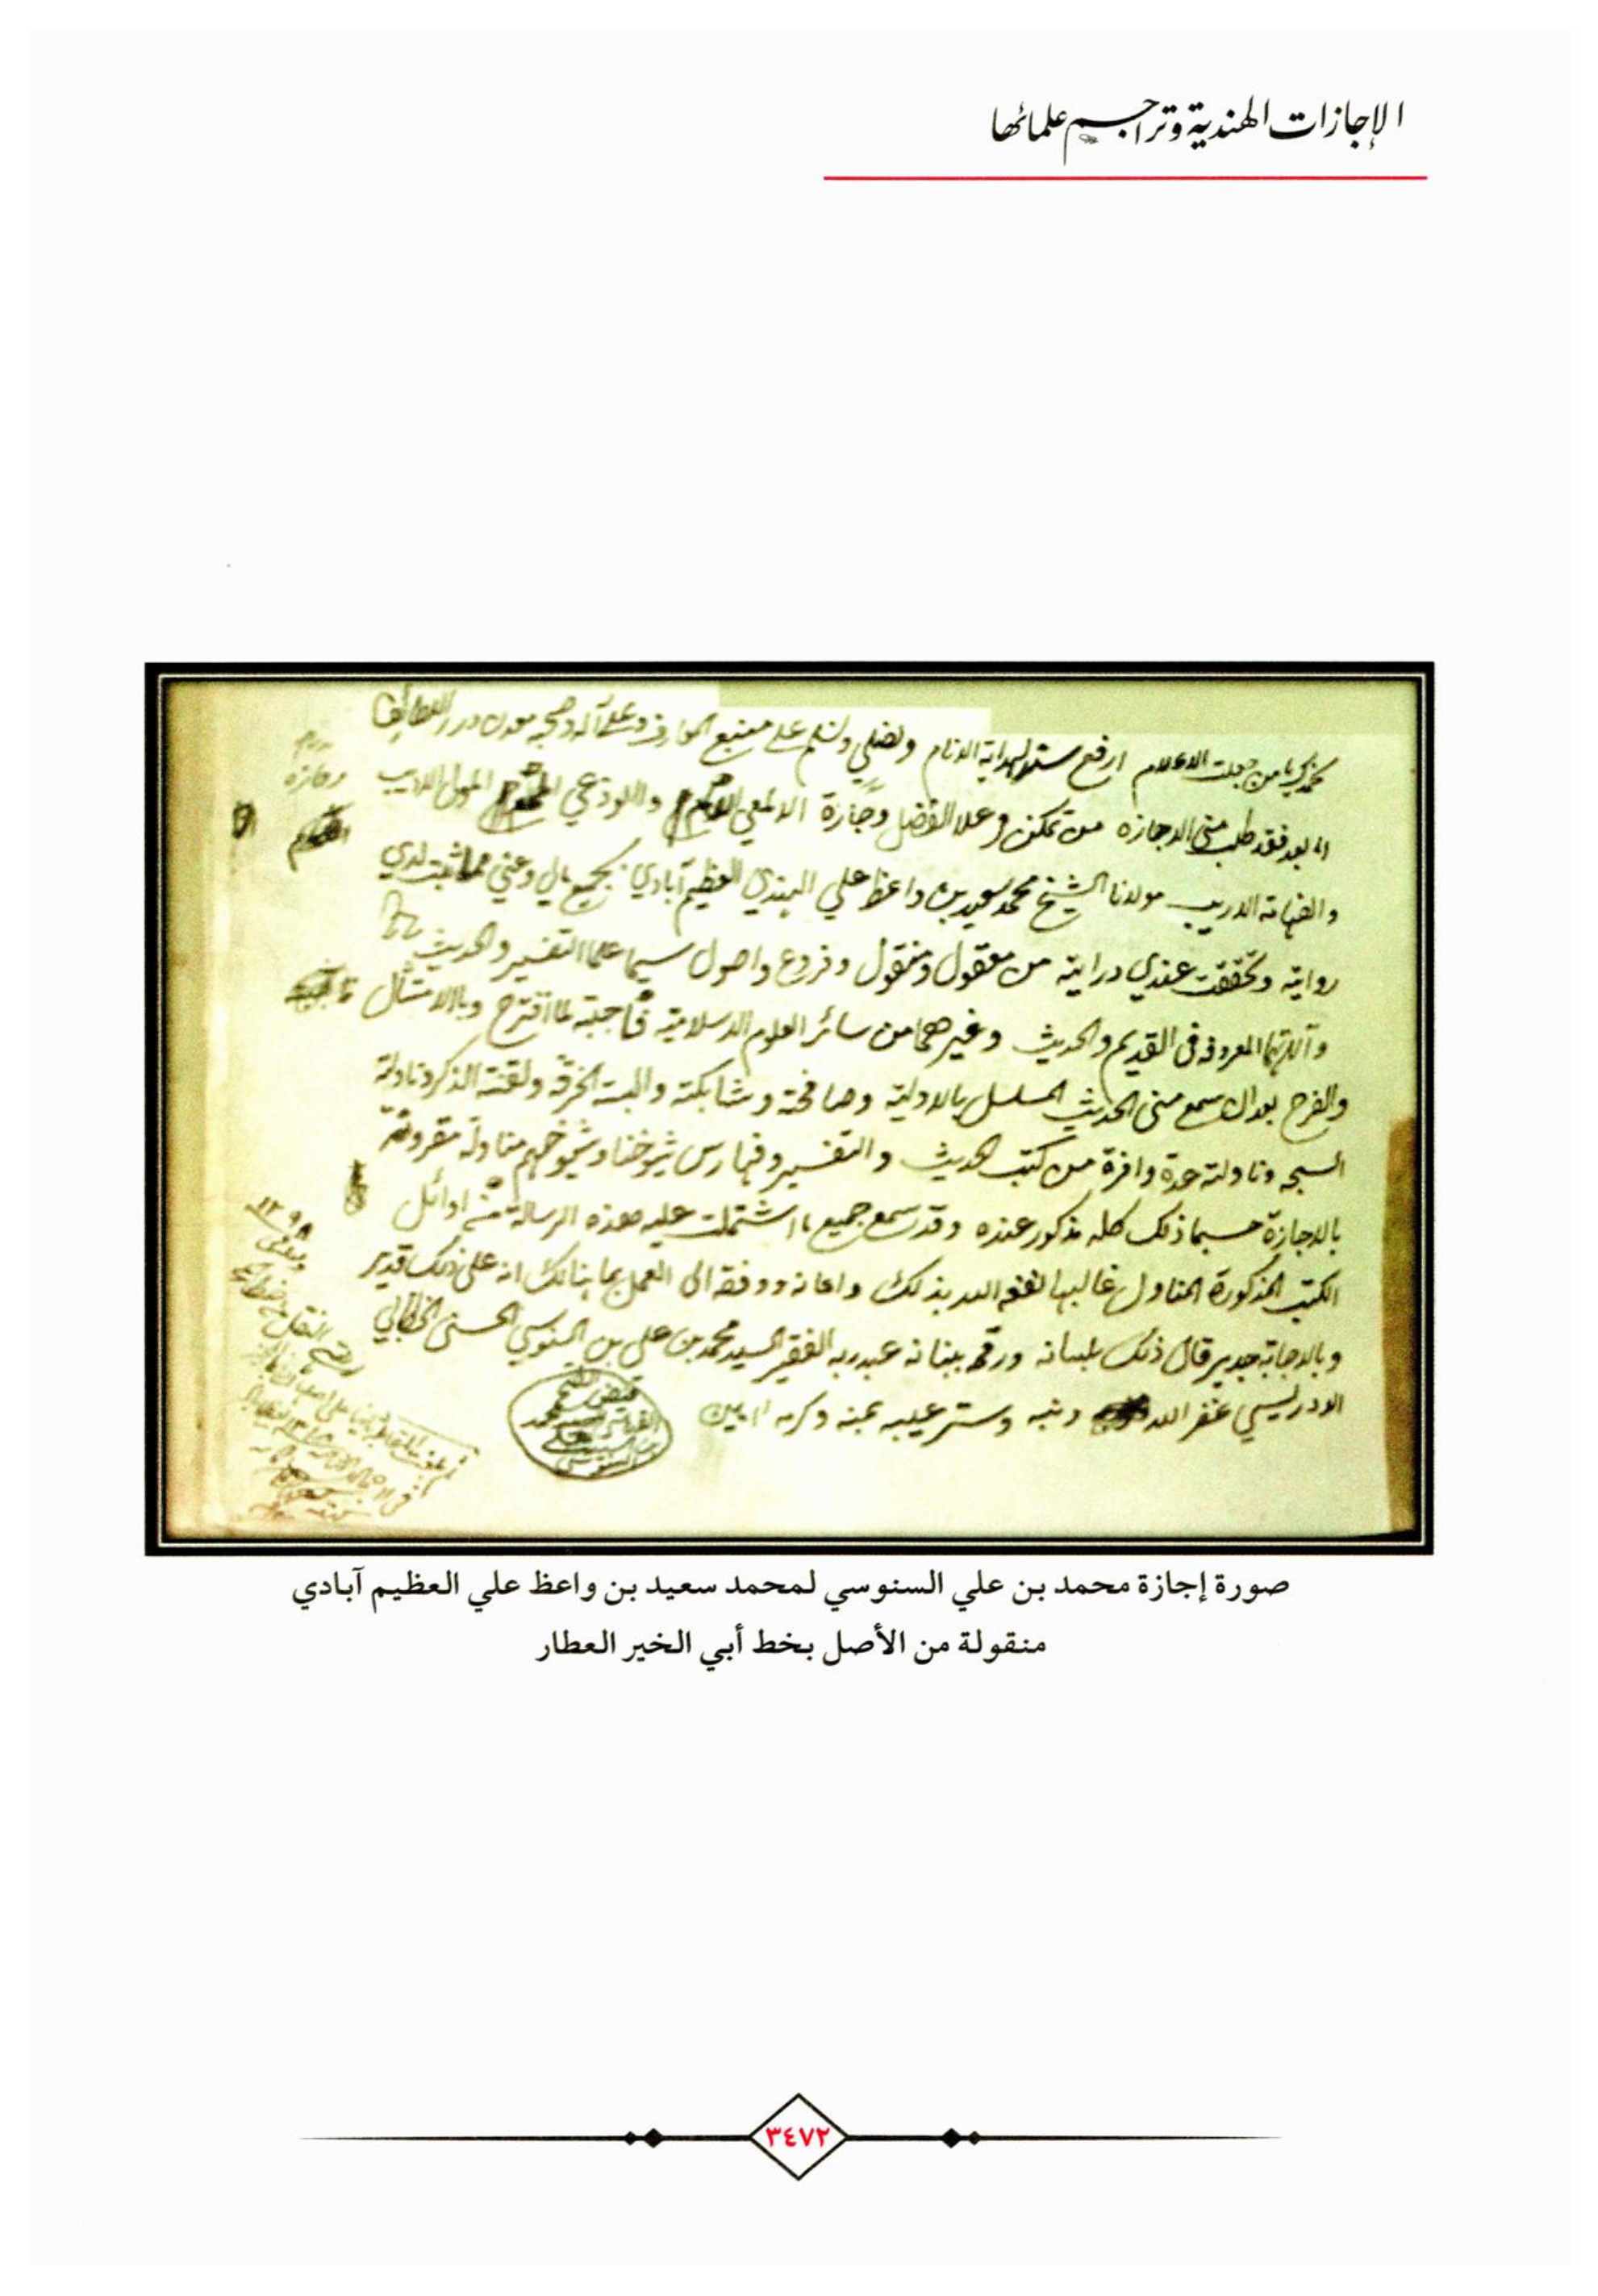 الإجازات الهندية وتراجم علمائها
نحمدك يا من جعلت الاعلام ارفع سند لهداية الانام ونصلي ونسلم على منبع المعارف وعلى آله وصحبه معدن درر اللطائف
اما بعد فقد طلب مني الاجازه من تمكن وعلا الفضل وحازه الالمعي والاوذعي المولى الاديب
والفهامة الاريب مولانا الشيخ محمد سعيد بن واعظ علي الهندي العظيم آبادي بجميع مالي وعني مما ثبت لدي
روايته وتحققت عندي درايته من معقول ومنقول وفروع واصول سيما علما التفسير والحديث
وآلاتهما المعروفه في القديم والحديث وغيرهما من سائر العلوم الاسلامية فأجبته لما اقترح وبالامتثال
والفرح بعد ان سمع مني الحديث المسلسل بالاولية وصافحته وشابكته والبسته الخرقة ولقنته الذكر وناولته
السبحه وناولته عدة وافرة من كتب الحديث والتفسير وفهارس شيوخنا وشيوخهم مناولة مقرونة
بالاجازة حسبما ذلك كله مذكور عنده وقد سمع جميع ما اشتملت عليه هذه الرسالة من اوائل
الكتب المذكورة المناول غالبها نفعه الله بذلك واعانه ووفقه الى العمل بما هنالك انه على ذلك قدير
وبالاجابة جدير قال ذلك بلسانه ورقمه ببنانه عبد ربه الفقير السيد محمد بن علي بن السنوسي الحسني الخطابي
الادريسي غفر الله ذنبه وستر عيبه بمنه وكرمه امين
صورة إجازة محمد بن علي السنوسي لمحمد سعيد بن واعظ علي العظيم آبادي
منقولة من الأصل بخط أبي الخير العطار
٣٤٧٢